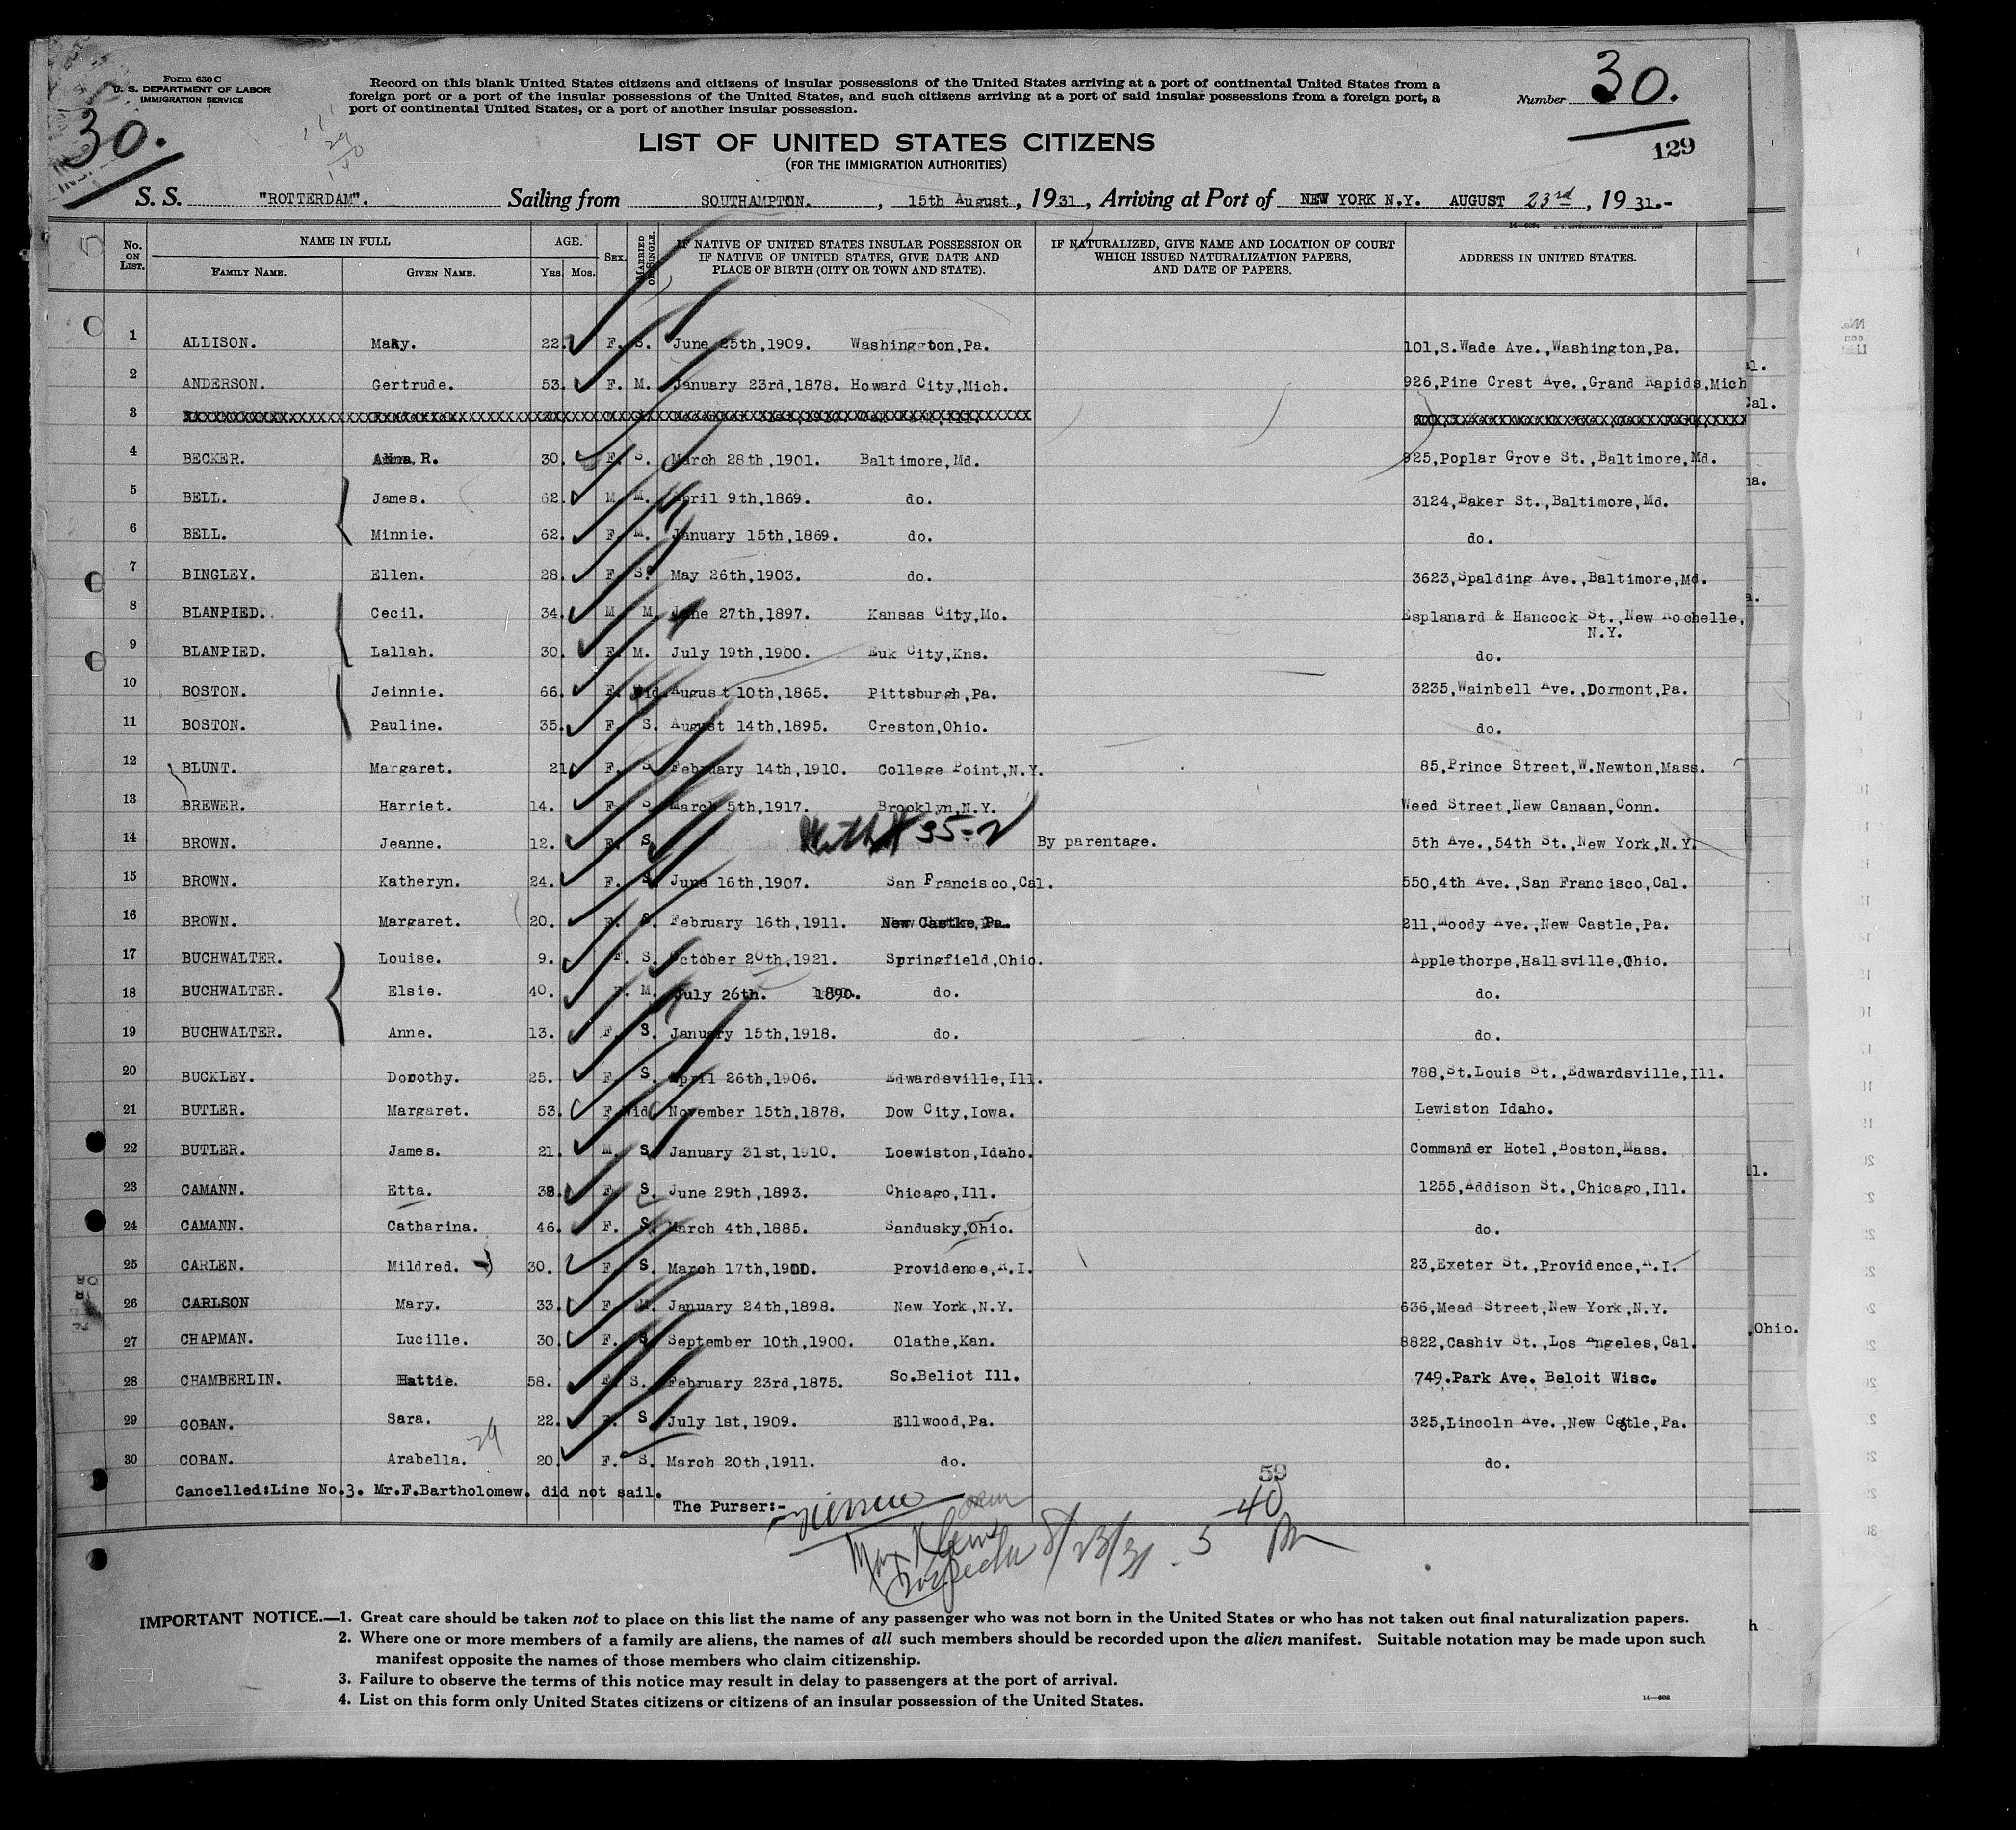 Form 630 C
U. S. DEPARTMENT OF LABOR
IMMIGRATION SERVICE
30.
Record on this blank United States citizens and citizens of insular possessions of the United States arriving at a port of continental United States from a
foreign port or a port of the insular possessions of the United States, and such citizens arriving at a port of said insular possessions from a foreign port, a
port of continental United States, or a port of another insular possession.
Number 30.
129
LIST OF UNITED STATES CITIZENS
(FOR THE IMMIGRATION AUTHORITIES)
S. S. "ROTTERDAM". Sailing from SOUTHAMPTON. , 15th August, 1931, Arriving at Port of NEW YORK N.Y. AUGUST 23rd, 1931.-
No. ON LIST. NAME IN FULL FAMILY NAME. GIVEN NAME. AGE. YRS. MOS. SEX. MARRIED OR SINGLE. IF NATIVE OF UNITED STATES INSULAR POSSESSION OR IF NATIVE OF UNITED STATES, GIVE DATE AND PLACE OF BIRTH (CITY OR TOWN AND STATE). IF NATURALIZED, GIVE NAME AND LOCATION OF COURT WHICH ISSUED NATURALIZATION PAPERS, AND DATE OF PAPERS. ADDRESS IN UNITED STATES.
1 ALLISON. Mary. 22. F. S. June 25th,1909. Washington,Pa. 101,S.Wade Ave.,Washington,Pa.
2 ANDERSON. Gertrude. 53. F. M. January 23rd,1878. Howard City,Mich. 926,Pine Crest Ave.,Grand Rapids,Mich
3
4 BECKER. Anna R. 30. F. S. March 28th,1901. Baltimore,Md. 925,Poplar Grove St.,Baltimore,Md.
5 BELL. James. 62. M. M. April 9th,1869. do. 3124,Baker St.,Baltimore,Md.
6 BELL. Minnie. 62. F. M. January 15th,1869. do. do.
7 BINGLEY. Ellen. 28. F. S. May 26th,1903. do. 3623,Spalding Ave.,Baltimore,Md.
8 BLANPIED. Cecil. 34. M M June 27th,1897. Kansas City,Mo. Esplanard & Hancock St.,New Rochelle,
N.Y.
9 BLANPIED. Lallah. 30. F. M. July 19th,1900. Euk City,Kns. do.
10 BOSTON. Jeinnie. 66. F. Wid. August 10th,1865. Pittsburgh,Pa. 3235,Wainbell Ave.,Dormont,Pa.
11 BOSTON. Pauline. 35. F. S. August 14th,1895. Creston,Ohio. do.
12 BLUNT. Margaret. 21 F. S February 14th,1910. College Point,N.Y. 85,Prince Street,W.Newton,Mass.
13 BREWER. Harriet. 14. F. S March 5th,1917. Brooklyn,N.Y. Weed Street,New Canaan,Conn.
14 BROWN. Jeanne. 12. F. S. By parentage. 5th Ave.,54th St.,New York,N.Y.
15 BROWN. Katheryn. 24. F. S. June 16th,1907. San Francisco,Cal. 550,4th Ave.,San Francisco,Cal.
16 BROWN. Margaret. 20. F. S. February 16th,1911. New Castke,Pa. 211,Moody Ave.,New Castle,Pa.
17 BUCHWALTER. Louise. 9. F. S. October 20th,1921. Springfield,Ohio. Applethorpe,Hallsville,Ohio.
18 BUCHWALTER. Elsie. 40. F. M. July 26th. 1890. do. do.
19 BUCHWALTER. Anne. 13. F. S. January 15th,1918. do. do.
20 BUCKLEY. Dorothy. 25. F. S. April 26th,1906. Edwardsville,Ill. 788,St.Louis St.,Edwardsville,Ill.
21 BUTLER. Margaret. 53. F. Wid. November 15th,1878. Dow City,Iowa. Lewiston Idaho.
22 BUTLER. James. 21. M. S. January 31st,1910. Loewiston,Idaho. Commander Hotel,Boston,Mass.
23 CAMANN. Etta. 38. F. S. June 29th,1893. Chicago,Ill. 1255,Addison St.,Chicago,Ill.
24 CAMANN. Catharina. 46. F. S. March 4th,1885. Sandusky,Ohio. do.
25 CARLEN. Mildred. 30. F. S. March 17th, Providence,R.I. 23,Exeter St.,Providence,R.I.
26 CARLSON Mary. 33. F. M. January 24th,1898. New York,N.Y. 636,Mead Street,New York,N.Y.
27 CHAPMAN. Lucille. 30. F. S. September 10th,1900. Olathe,Kan. 8822,Cashiv St.,Los Angeles,Cal.
28 CHAMBERLIN. Hattie. 58. F. S. February 23rd,1875. So.Beliot Ill. 749.Park Ave. Beloit Wisc.
29 COBAN. Sara. 22. F. S July 1st,1909. Ellwood,Pa. 325,Lincoln Ave.,New Castle,Pa.
30 COBAN. Arabella. 20. F. S. March 20th,1911. do. do.
29
Cancelled:Line No.3. Mr.F.Bartholomew. did not sail.
The Purser:-
59
40
Inspector 8/23/31
IMPORTANT NOTICE.—1. Great care should be taken not to place on this list the name of any passenger who was not born in the United States or who has not taken out final naturalization papers.
2. Where one or more members of a family are aliens, the names of all such members should be recorded upon the alien manifest. Suitable notation may be made upon such
manifest opposite the names of those members who claim citizenship.
3. Failure to observe the terms of this notice may result in delay to passengers at the port of arrival.
4. List on this form only United States citizens or citizens of an insular possession of the United States.
14—608